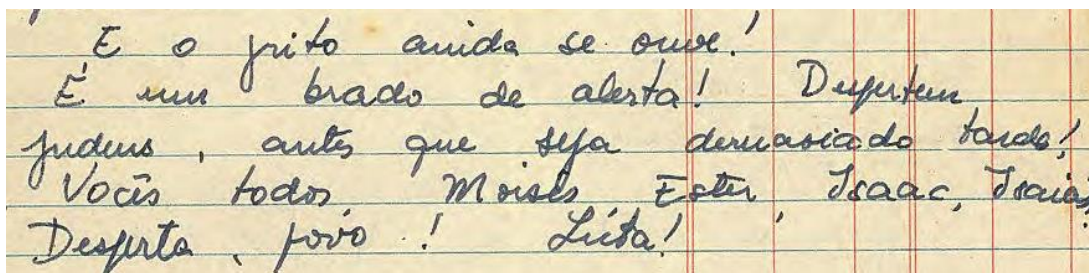 E o grito ainda se ouve!
É um brado de alerta! Despertem,
judeus, antes que seja demasiado tarde!
Vocês todos, Moisés, Ester, Isaac, Isaias.
Desperta, povo! Luta!